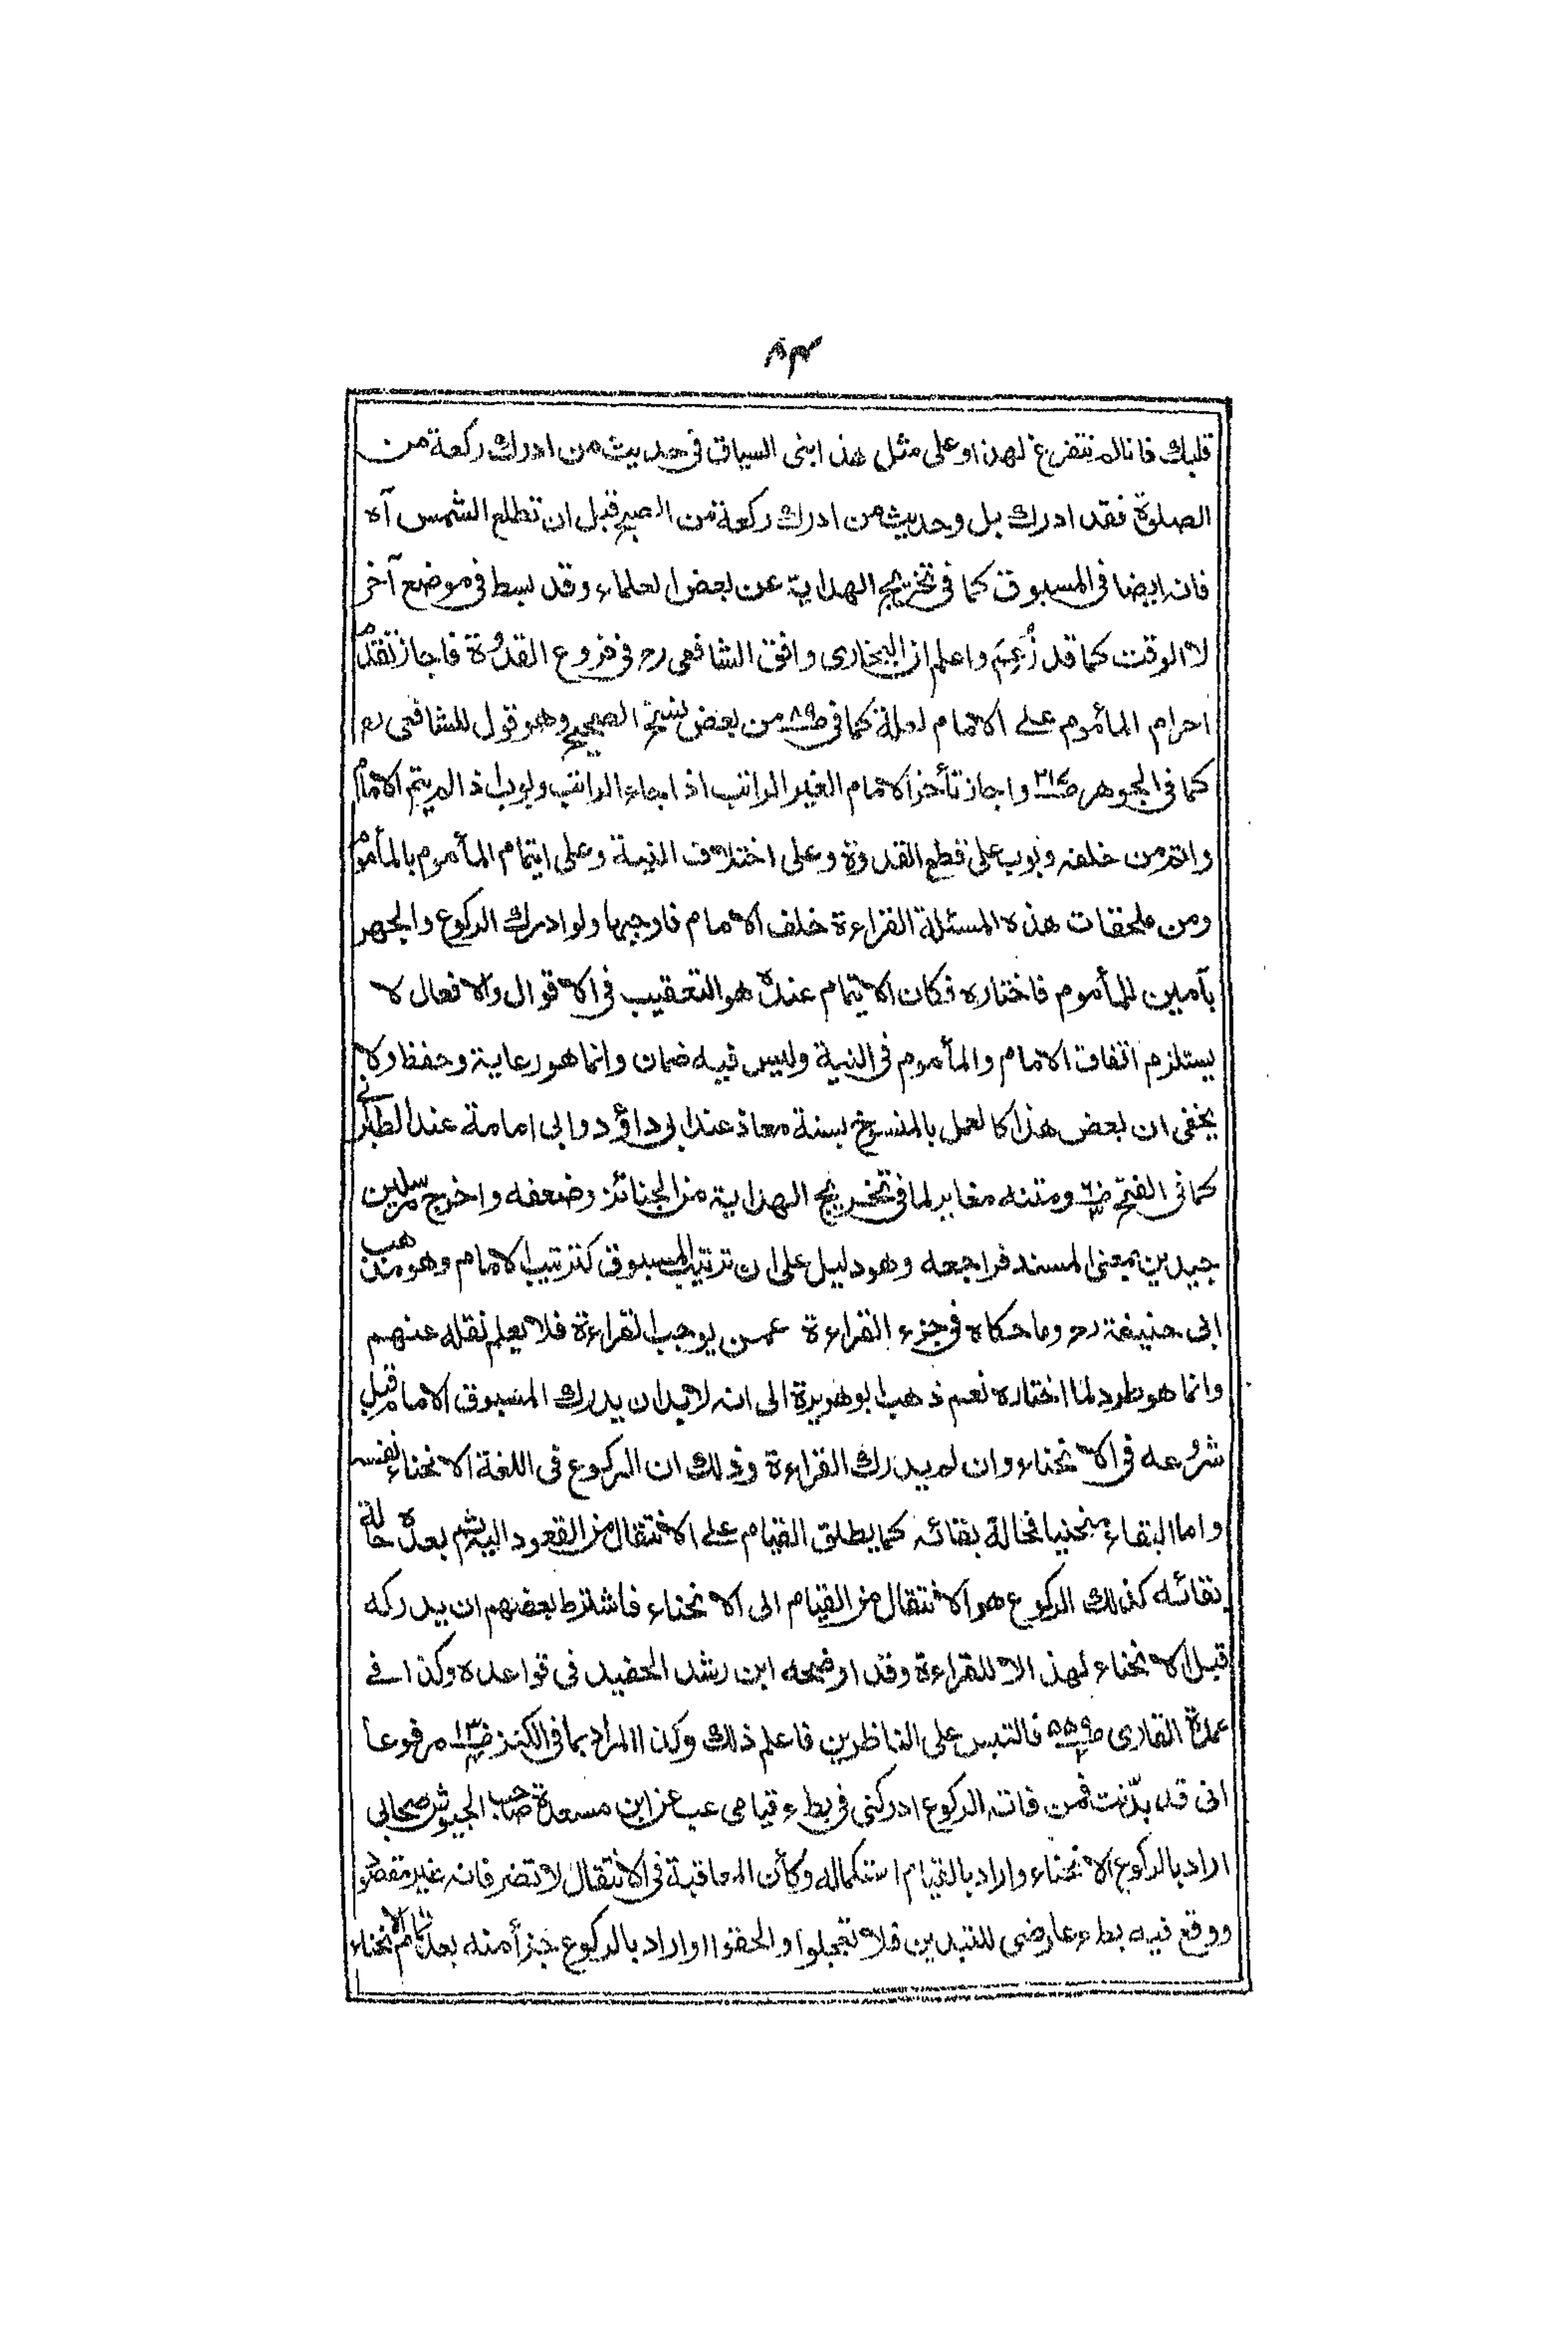 ٨٣
قلبك فانا لم نتفرغ لهذا وعلى مثل هذا بنى السياق فى حديث من ادرك ركعة من
الصلوة فقد ادرك بل وحديث من ادرك ركعة من الصبح قبل ان تطلع الشمس آه
فانه ايضا فى المسبوق كما فى تخريج الهداية عن بعض العلماء وقد بسط فى موضع آخر
لا الوقت كما قد زُعِمَ واعلم ان البخارى وافق الشافعى رح فى فروع القدُوة فاجاز تقدم
احرام المأموم على الامام لعلة كما فى ص٨٩ من بعض نسخ الصحيح وهو قول للشافعى رح
كما فى الجوهر ص٢١٤ واجاز تأخر الامام الغير الراتب اذا جاء الراتب وبوب اذا لم يتم الامام
واتم من خلفه وبوب على قطع القدوة وعلى اختلاف النية وعلى ايتمام المأموم بالمأموم
ومن ملحقات هذه المسئلة القراءة خلف الامام فاوجبها ولو ادرك الركوع والجهر
بآمين للمأموم فاختاره فكان الايتمام عنده هو التعقيب فى الاقوال والافعال لا
يستلزم اتفاق الامام والمأموم فى النية وليس فيه ضمان وانما هو رعاية وحفظ ولا
يخفى ان بعض هذا كالعمل بالمنسوخ بسنة معاذ عند ابى داؤد وابى امامة عند الطبرانى
كما فى الفتح ومتنه مغاير لما فى تخريج الهداية من الجنائز وضعفه واخرج مرسلين
جيدين بمعنى المسند فراجعه وهو دليل على ان ترتيب المسبوق كترتيب الامام وهو مذهب
ابى حنيفة رح وما حكاه فى جزء القراءة عمن يوجب القراءة فلا يعلم نقله عنهم
وانما هو طرد لما اختاره نعم ذهب ابو هريرة الى انه لا بد ان يدرك المسبوق الامام قبل
شروعه فى الانحناء وان لم يدرك القراءة وذلك ان الركوع فى اللغة الانحناء نفسه
واما البقاء منحنيا فحالة بقائه كما يطلق القيام على الانتقال من القعود اليه ثم بعده حالة
بقائه كذلك الركوع هو الانتقال من القيام الى الانحناء فاشترط بعضهم ان يدركه
قبل الانحناء لهذا لا للقراءة وقد اوضحه ابن رشد الحفيد فى قواعده وكذا فى
عمدة القارى فالتبس على الناظرين فاعلم ذلك وكذا المراد بما فى الكنز مرفوعا
انى قد بدّنت فمن فاته الركوع ادركنى فى بطء قيامى عب عن ابن مسعدة صاحب الجيوش صحابى
اراد بالركوع الانحناء واراد بالقيام استكماله وكأن المعاقبة فى الانتقال لا تضر فانه غير مقصود
ووقع فيه بطء عارضى للتبدين فلا تعجلوا والحقوا او اراد بالركوع جزأ منه بعد تمام الانحناء